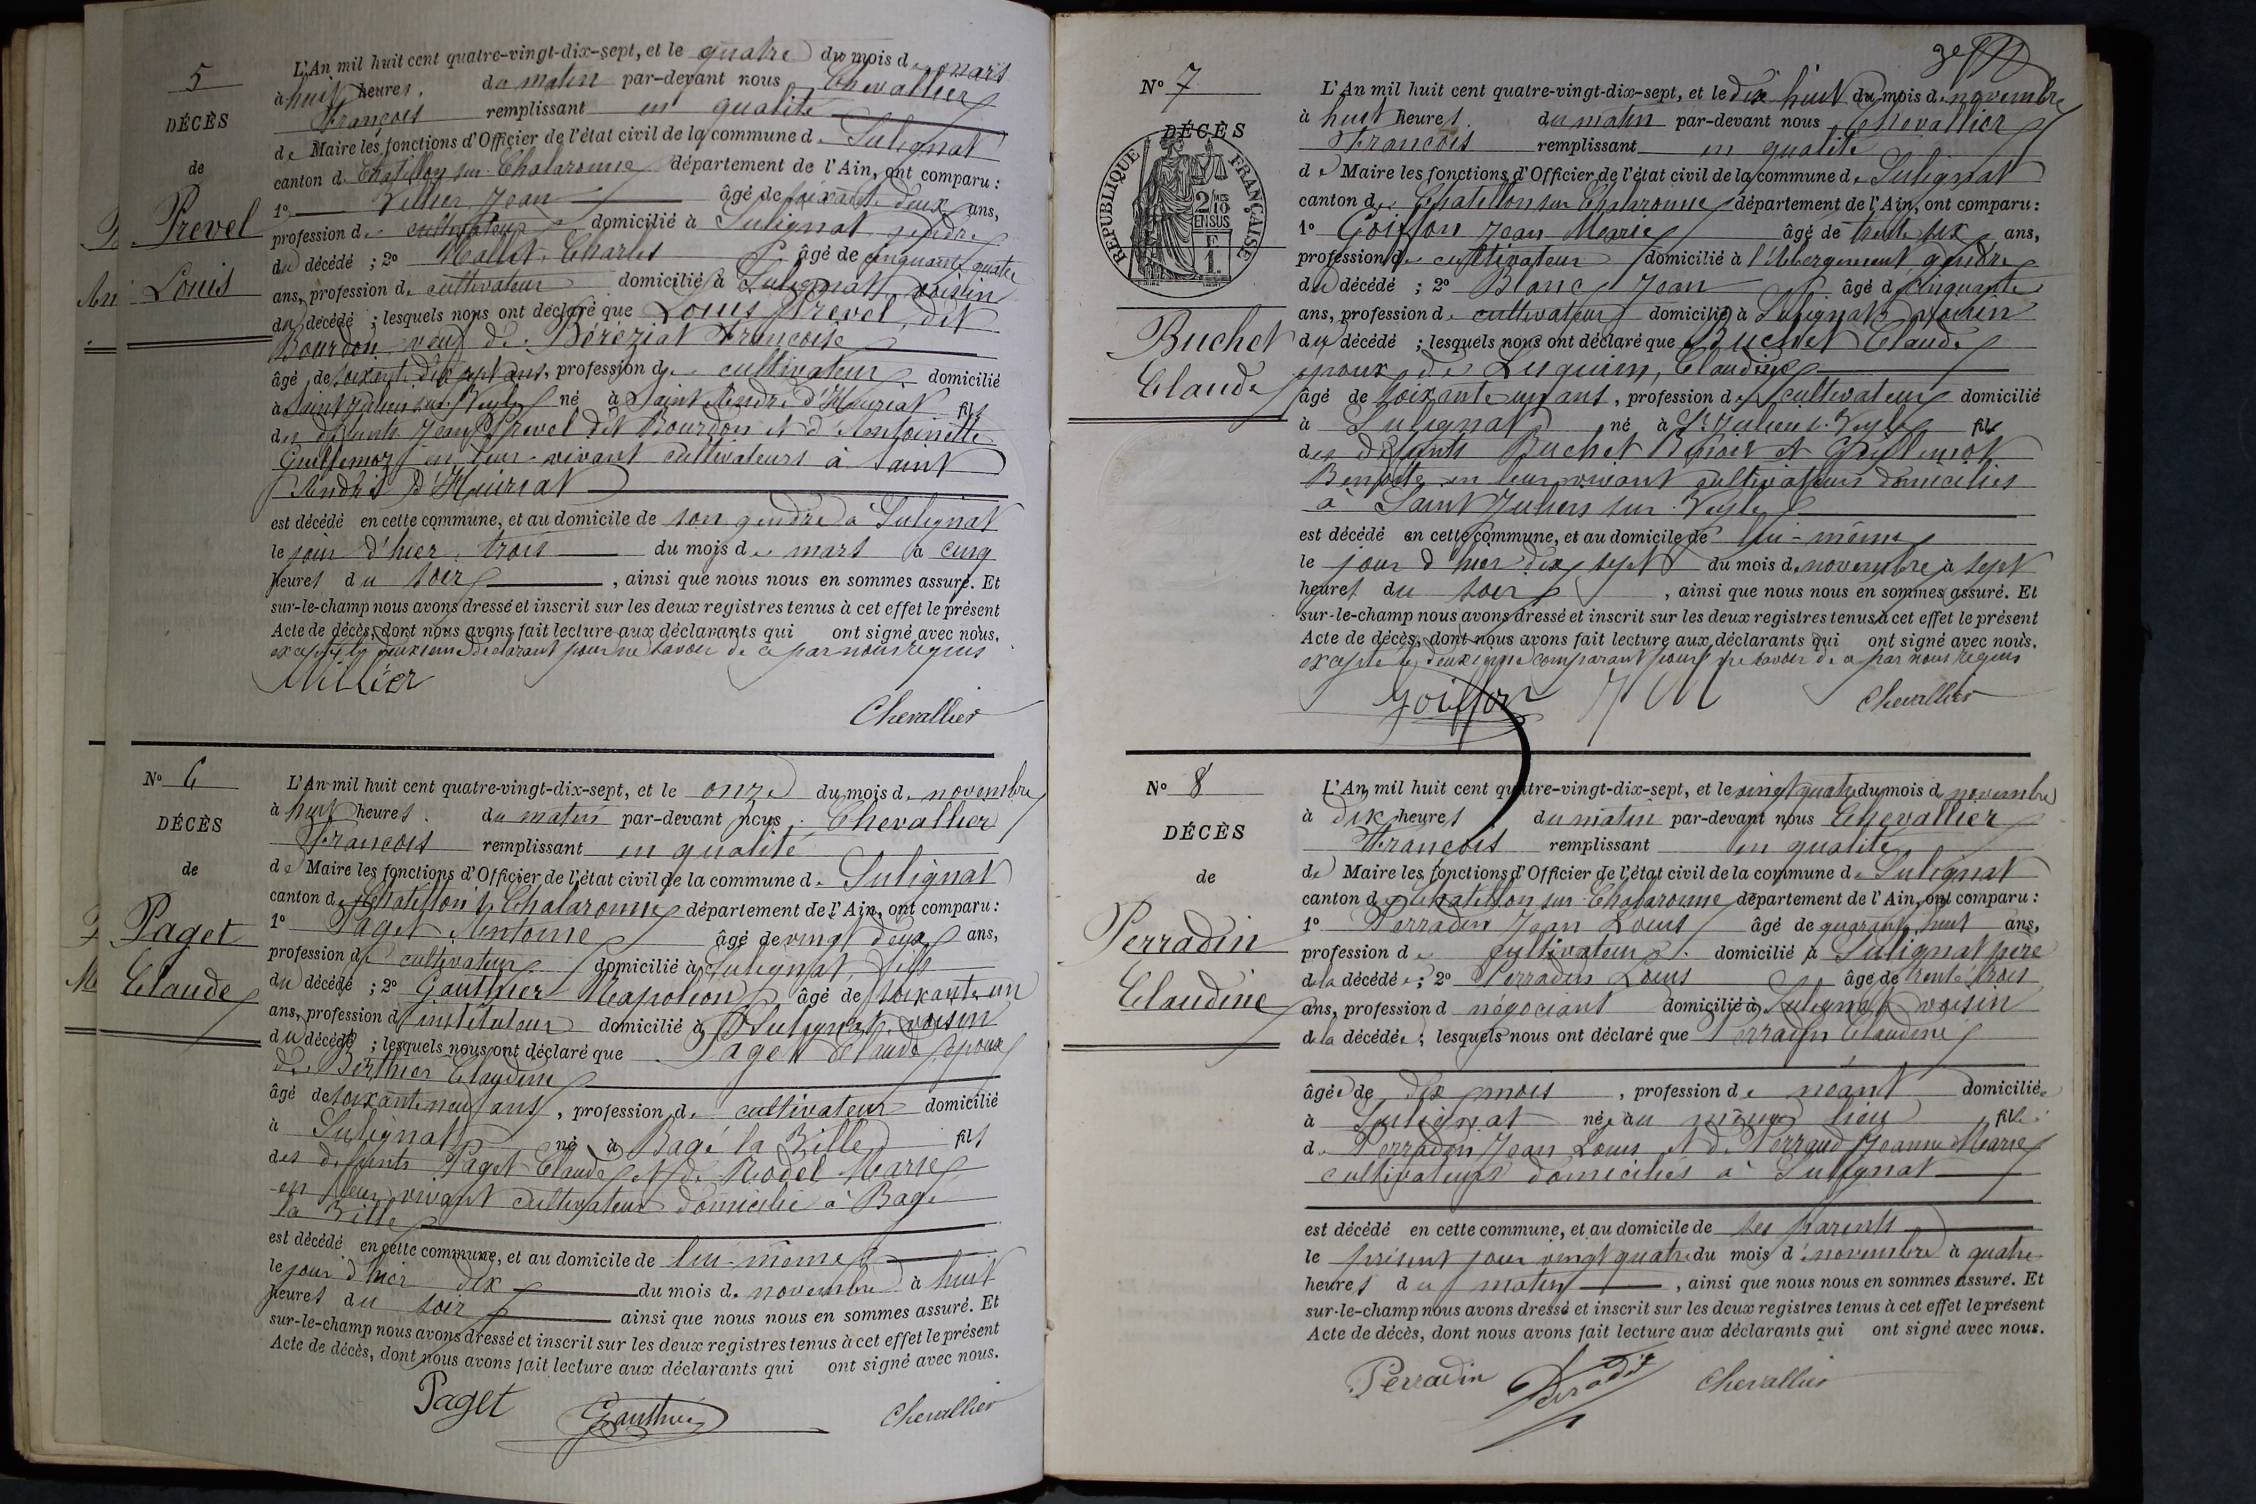 5
DÉCÈS
de
Prevel
Louis
L'An mil huit cent quatre-vingt-dix-sept, et le quatre du mois de mars
à huit heures du matin par-devant nous Chevallier
François remplissant en qualité
de Maire les fonctions d'Officier de l'état civil de la commune de Sulignat
canton de Chatillon sur Chalaronne département de l'Ain, ont comparu :
1° Jean âgé de soixante deux ans,
profession de cultivateur domicilié à Sulignat gendre
du décédé ; 2° Charles âgé de cinquante quatre
ans, profession de cultivateur domicilié à Sulignat voisin
du décédé ; lesquels nous ont déclaré que Louis Prevel, dit
Bourdon veuf de Béréziat Françoise
âgé de soixante dix sept ans, profession de cultivateur domicilié
à Saint Julien sur Veyle né à Saint André d'Huiriat fils
des défunts Jean Prevel dit Bourdon et d'Antoinette
Guillemoz en leur vivant cultivateurs à Saint
André d'Huiriat
est décédé en cette commune, et au domicile de son gendre à Sulignat
le jour d'hier trois du mois de mars à cinq
heures du soir, ainsi que nous nous en sommes assuré. Et
sur-le-champ nous avons dressé et inscrit sur les deux registres tenus à cet effet le présent
Acte de décès, dont nous avons fait lecture aux déclarants qui ont signé avec nous.
excepté le deuxième déclarant pour ne savoir de ce par nous requis
Chevallier
N° 6
DÉCÈS
de
Paget
Claude
L'An mil huit cent quatre-vingt-dix-sept, et le onze du mois de novembre
à huit heures du matin par-devant nous Chevallier
François remplissant en qualité
de Maire les fonctions d'Officier de l'état civil de la commune de Sulignat
canton de Chatillon s Chalaronne département de l'Ain, ont comparu :
1° Paget Antoine âgé de vingt deux ans,
profession de cultivateur domicilié à Sulignat, fils
du décédé ; 2° Gauthier Napoléon âgé de soixante un
ans, profession d'instituteur domicilié à Sulignat voisin
du décédé ; lesquels nous ont déclaré que Paget Claude époux
de Berthier Claudine
âgé de soixante neuf ans, profession de cultivateur domicilié
à Sulignat né à Bagé la Ville fils
des défunts Paget Claude et de Rodel Marie
en leur vivant cultivateur domicilié à Bagé
la Ville
est décédé en cette commune, et au domicile de lui-même
le jour d'hier dix du mois de novembre à huit
heures du soir ainsi que nous nous en sommes assuré. Et
sur-le-champ nous avons dressé et inscrit sur les deux registres tenus à cet effet le présent
Acte de décès, dont nous avons fait lecture aux déclarants qui ont signé avec nous.
Paget Gauthier Chevallier
N° 7
DÉCÈS
REPUBLIQUE FRANÇAISE
2/10 EN SUS
Buchet
Claude
L'An mil huit cent quatre-vingt-dix-sept, et le dix huit du mois de novembre
à huit heures du matin par-devant nous Chevallier
François remplissant en qualité
de Maire les fonctions d'Officier de l'état civil de la commune de Sulignat
canton de Chatillon sur Chalaronne département de l'Ain, ont comparu :
1° Goiffon Jean Marie âgé de trente six ans,
profession de cultivateur domicilié à l'Abergement gendre
du décédé ; 2° Blanc Jean âgé de cinquante
ans, profession de cultivateur domicilié à Sulignat voisin
du décédé ; lesquels nous ont déclaré que Buchet Claude
époux de Luquin, Claudine
âgé de soixante un ans, profession de cultivateur domicilié
à Sulignat né à St Julien s. Veyle fils
des défunts Buchet Benoit et Guillemot
Benoîte en leur vivant cultivateurs domiciliés
à Saint Julien sur Veyle
est décédé en cette commune, et au domicile de lui-même
le jour d'hier dix sept du mois de novembre à sept
heures du soir, ainsi que nous nous en sommes assuré. Et
sur-le-champ nous avons dressé et inscrit sur les deux registres tenus à cet effet le présent
Acte de décès, dont nous avons fait lecture aux déclarants qui ont signé avec nous.
excepté le deuxième comparant pour ne savoir de ce par nous requis
Goiffon J M Chevallier
N° 8
DÉCÈS
de
Perradin
Claudine
L'An mil huit cent quatre-vingt-dix-sept, et le vingt quatre du mois de novembre
à dix heures du matin par-devant nous Chevallier
François remplissant en qualité
de Maire les fonctions d'Officier de l'état civil de la commune de Sulignat
canton de Chatillon sur Chalaronne département de l'Ain, ont comparu :
1° Perradin Jean Louis âgé de quarante huit ans,
profession de cultivateur domicilié à Sulignat père
de la décédée ; 2° Perradin Louis âgé de trente trois
ans, profession de négociant domicilié à Sulignat voisin
de la décédée ; lesquels nous ont déclaré que Perradin Claudine
âgée de dix mois, profession de néant domiciliée
à Sulignat née au même lieu fille
de Perradin Jean Louis et de Perraud Jeanne Marie
cultivateurs domiciliés à Sulignat
est décédé en cette commune, et au domicile de ses parents
le présent jour vingt quatre du mois de novembre à quatre
heures du matin, ainsi que nous nous en sommes assuré. Et
sur-le-champ nous avons dressé et inscrit sur les deux registres tenus à cet effet le présent
Acte de décès, dont nous avons fait lecture aux déclarants qui ont signé avec nous.
Perradin Chevallier